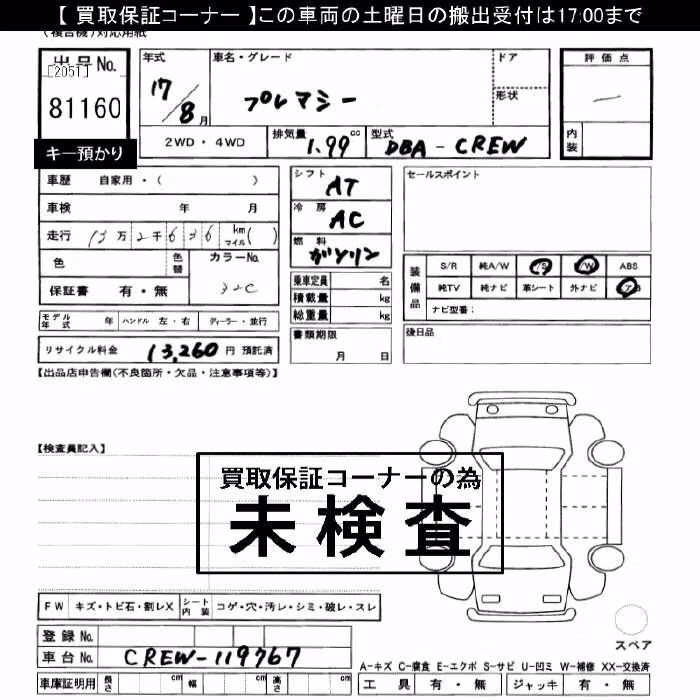 【 買取保証コーナー 】この車両の土曜日の搬出受付は17:00まで
(複合機)対応用紙
出品No.
[2051]
81160
キー預かり
年式
17/8月
車名・グレード
プレマシー
ドア
形状
2WD・4WD
排気量 1.99 cc
型式 DBA-CREW
評価点
内装
車歴 自家用・( )
車検 年 月
走行 13万2千636 km マイル( )
色 色替 カラーNo.
保証書 有・無 32C
シフト AT
冷房 AC
燃料 ガソリン
乗車定員 名
積載量 kg
総重量 kg
セールスポイント
装備品
S/R 純A/W P/S P/W ABS
純TV 純ナビ 革シート 外ナビ A/B
ナビ型番:
モデル年式 年 ハンドル 左・右 ディーラー・並行
書類期限 月 日
後日品
リサイクル料金 13,260円 預託済
【出品店申告欄(不良箇所・欠品・注意事項等)】
【検査員記入】
買取保証コーナーの為
未検査
FW キズ・トビ石・割レX シート内装 コゲ・穴・汚レ・シミ・破レ・スレ
登録No.
車台No. CREW-119767
スペア
A-キズ C-腐食 E-エクボ S-サビ U-凹ミ W-補修 XX-交換済
車庫証明用 長さ cm 幅 cm 高さ cm
工具 有・無 ジャッキ 有・無